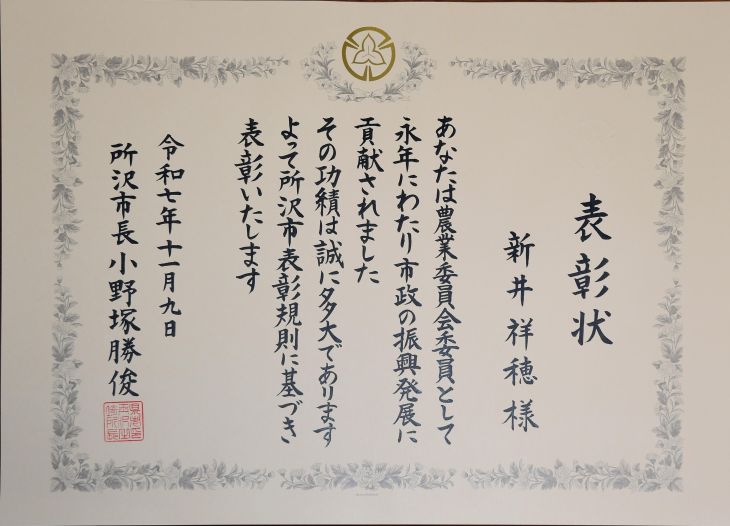 表彰状
新井祥穂様
あなたは農業委員会委員として
永年にわたり市政の振興発展に
貢献されました
その功績は誠に多大であります
よって所沢市表彰規則に基づき
表彰いたします
令和七年十一月九日
所沢市長小野塚勝俊